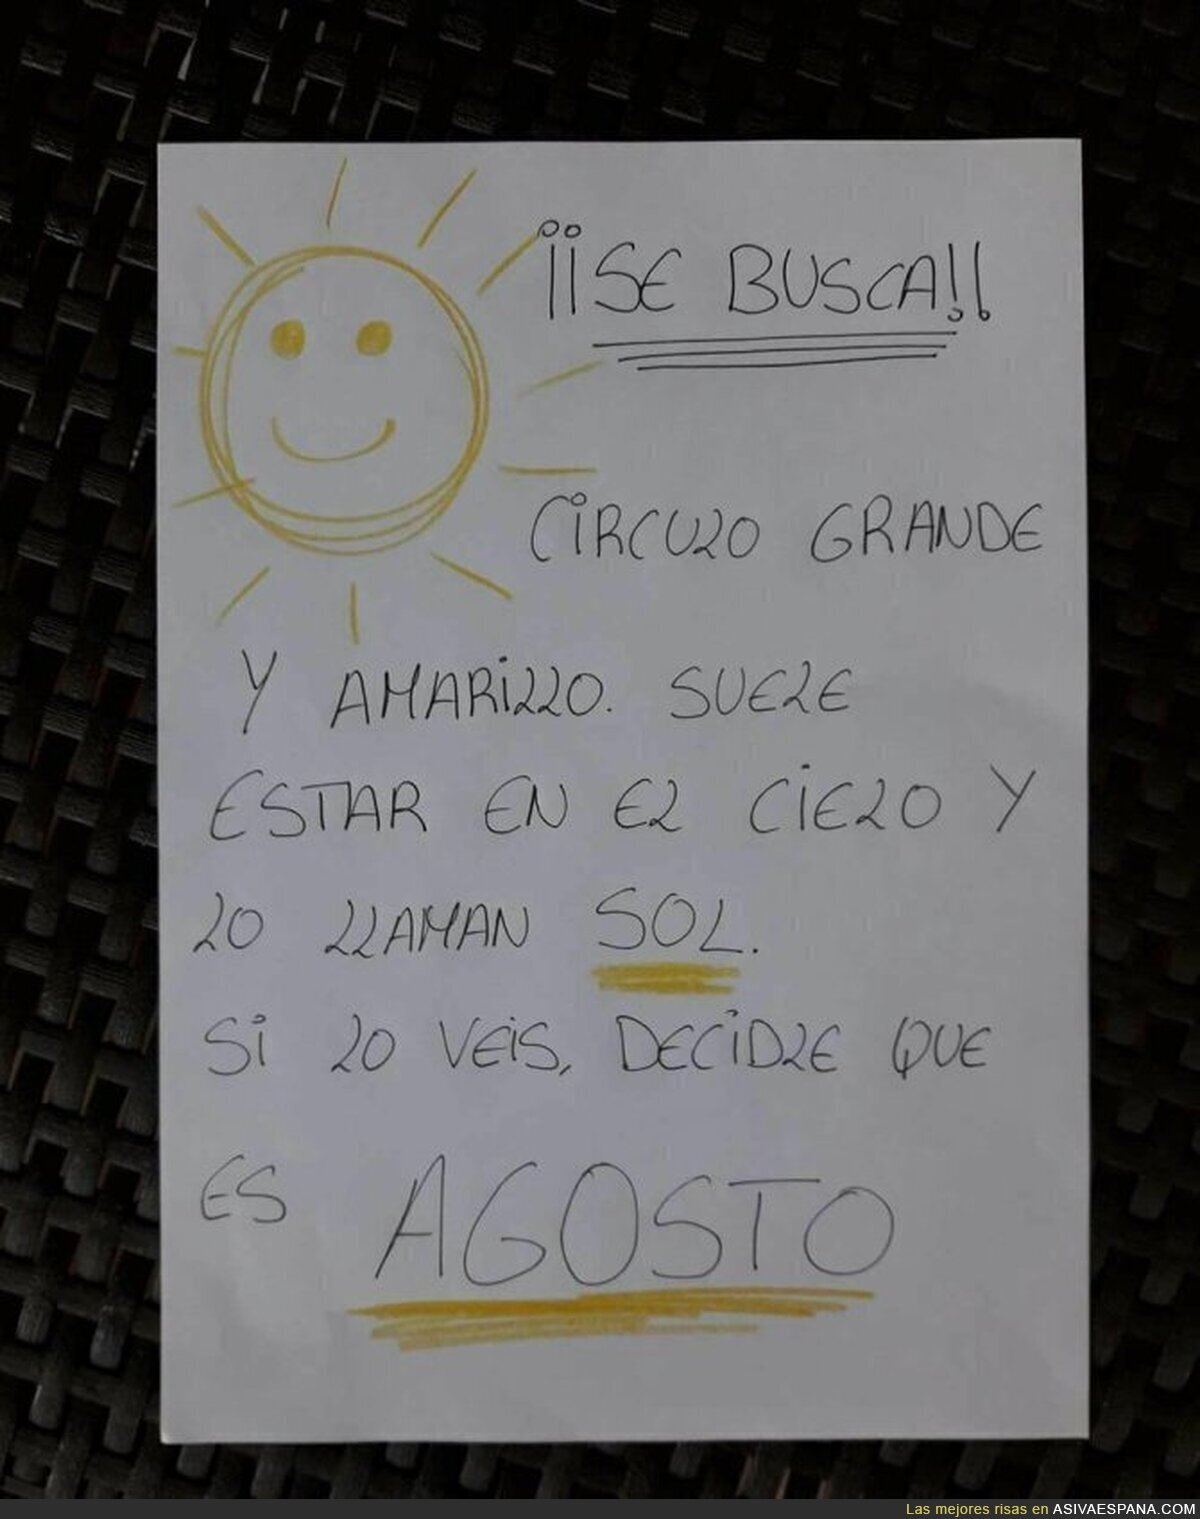 ¡¡SE BUSCA!!
CIRCULO GRANDE
Y AMARILLO. SUELE
ESTAR EN EL CIELO Y
LO LLAMAN SOL.
SI LO VEIS, DECIDLE QUE
ES AGOSTO
Las mejores risas en ASIVAESPANA.COM